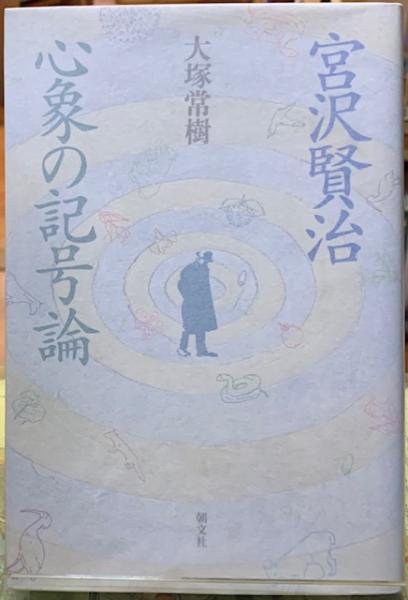 宮沢賢治
大塚常樹
心象の記号論
朝文社